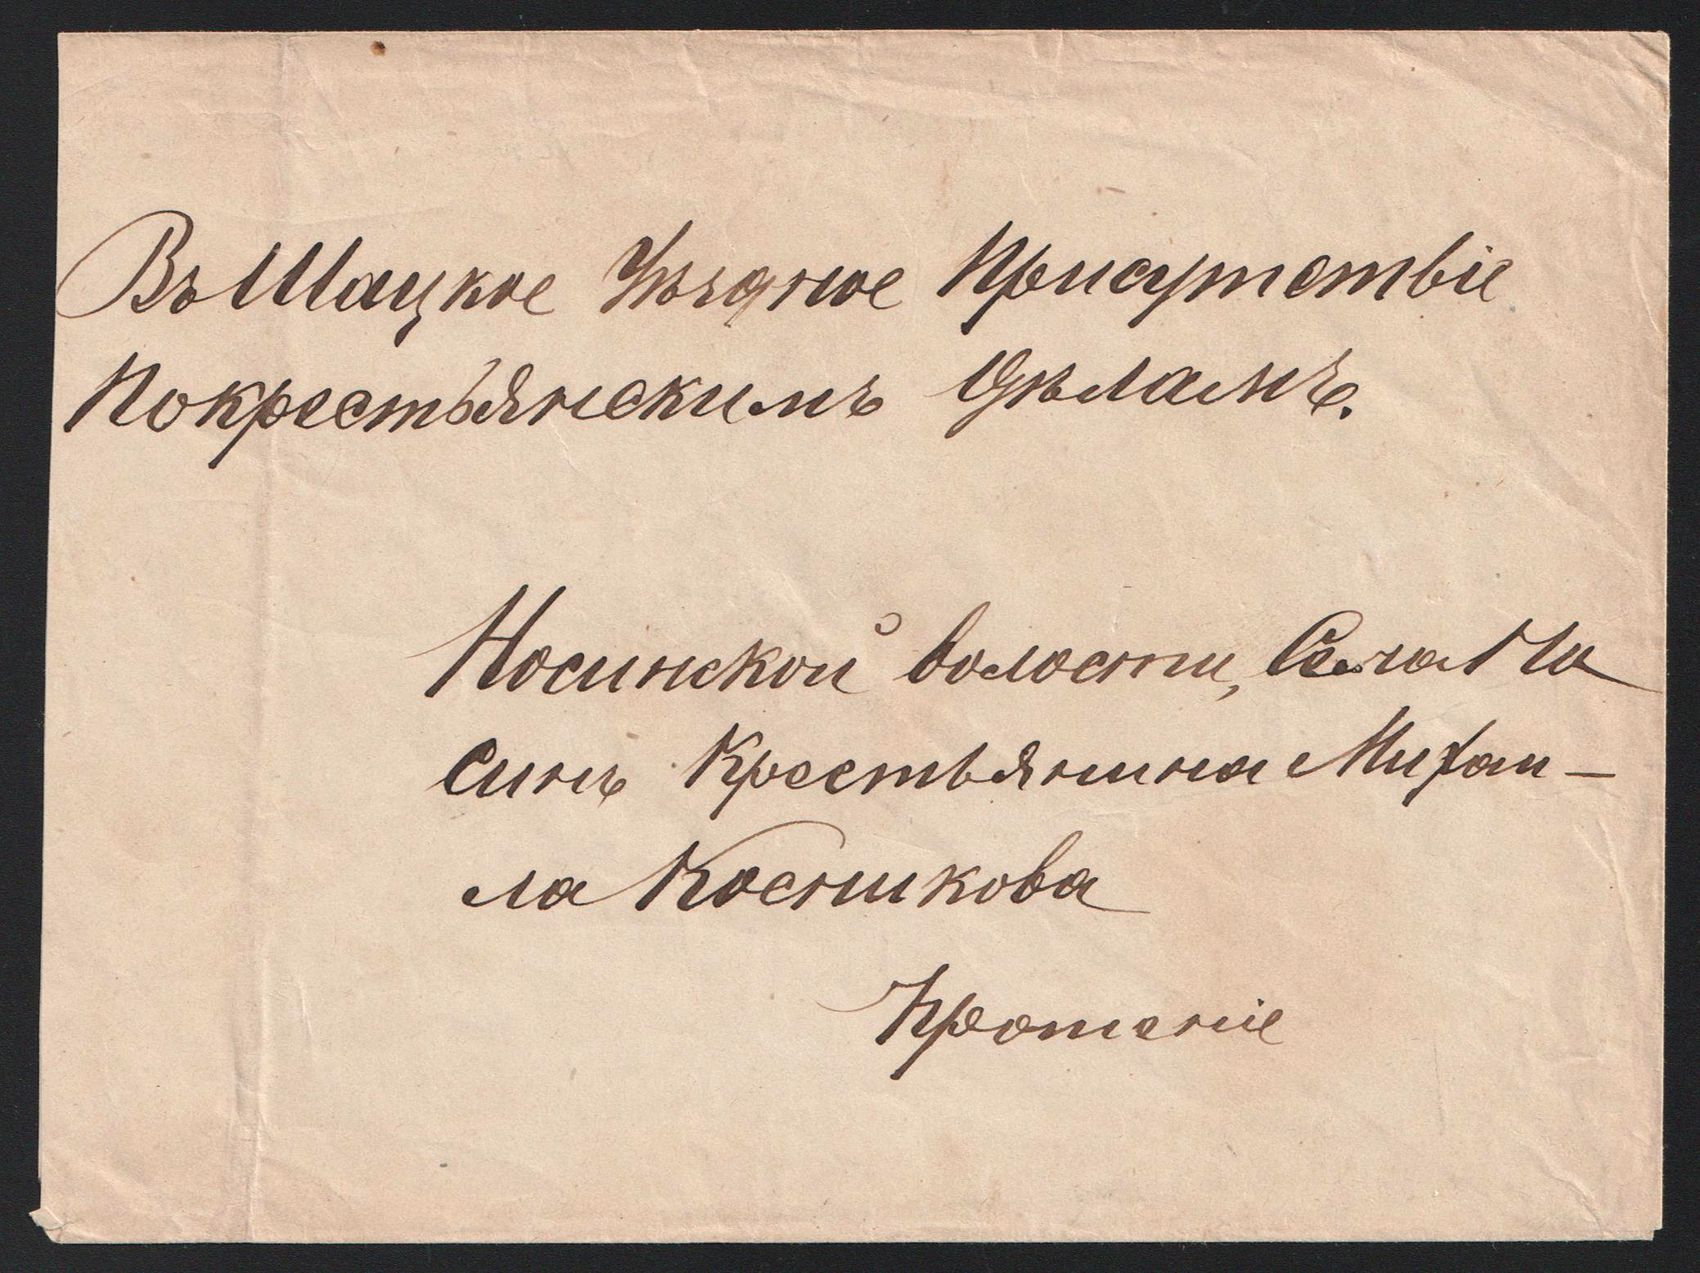 Въ Шацкое Уѣздное Присутствіе
Покрестьянскимъ Дѣламъ.
Носинской волости, Села Но
синъ Крестьянина Михаи-
ла Косникова
Прошеніе